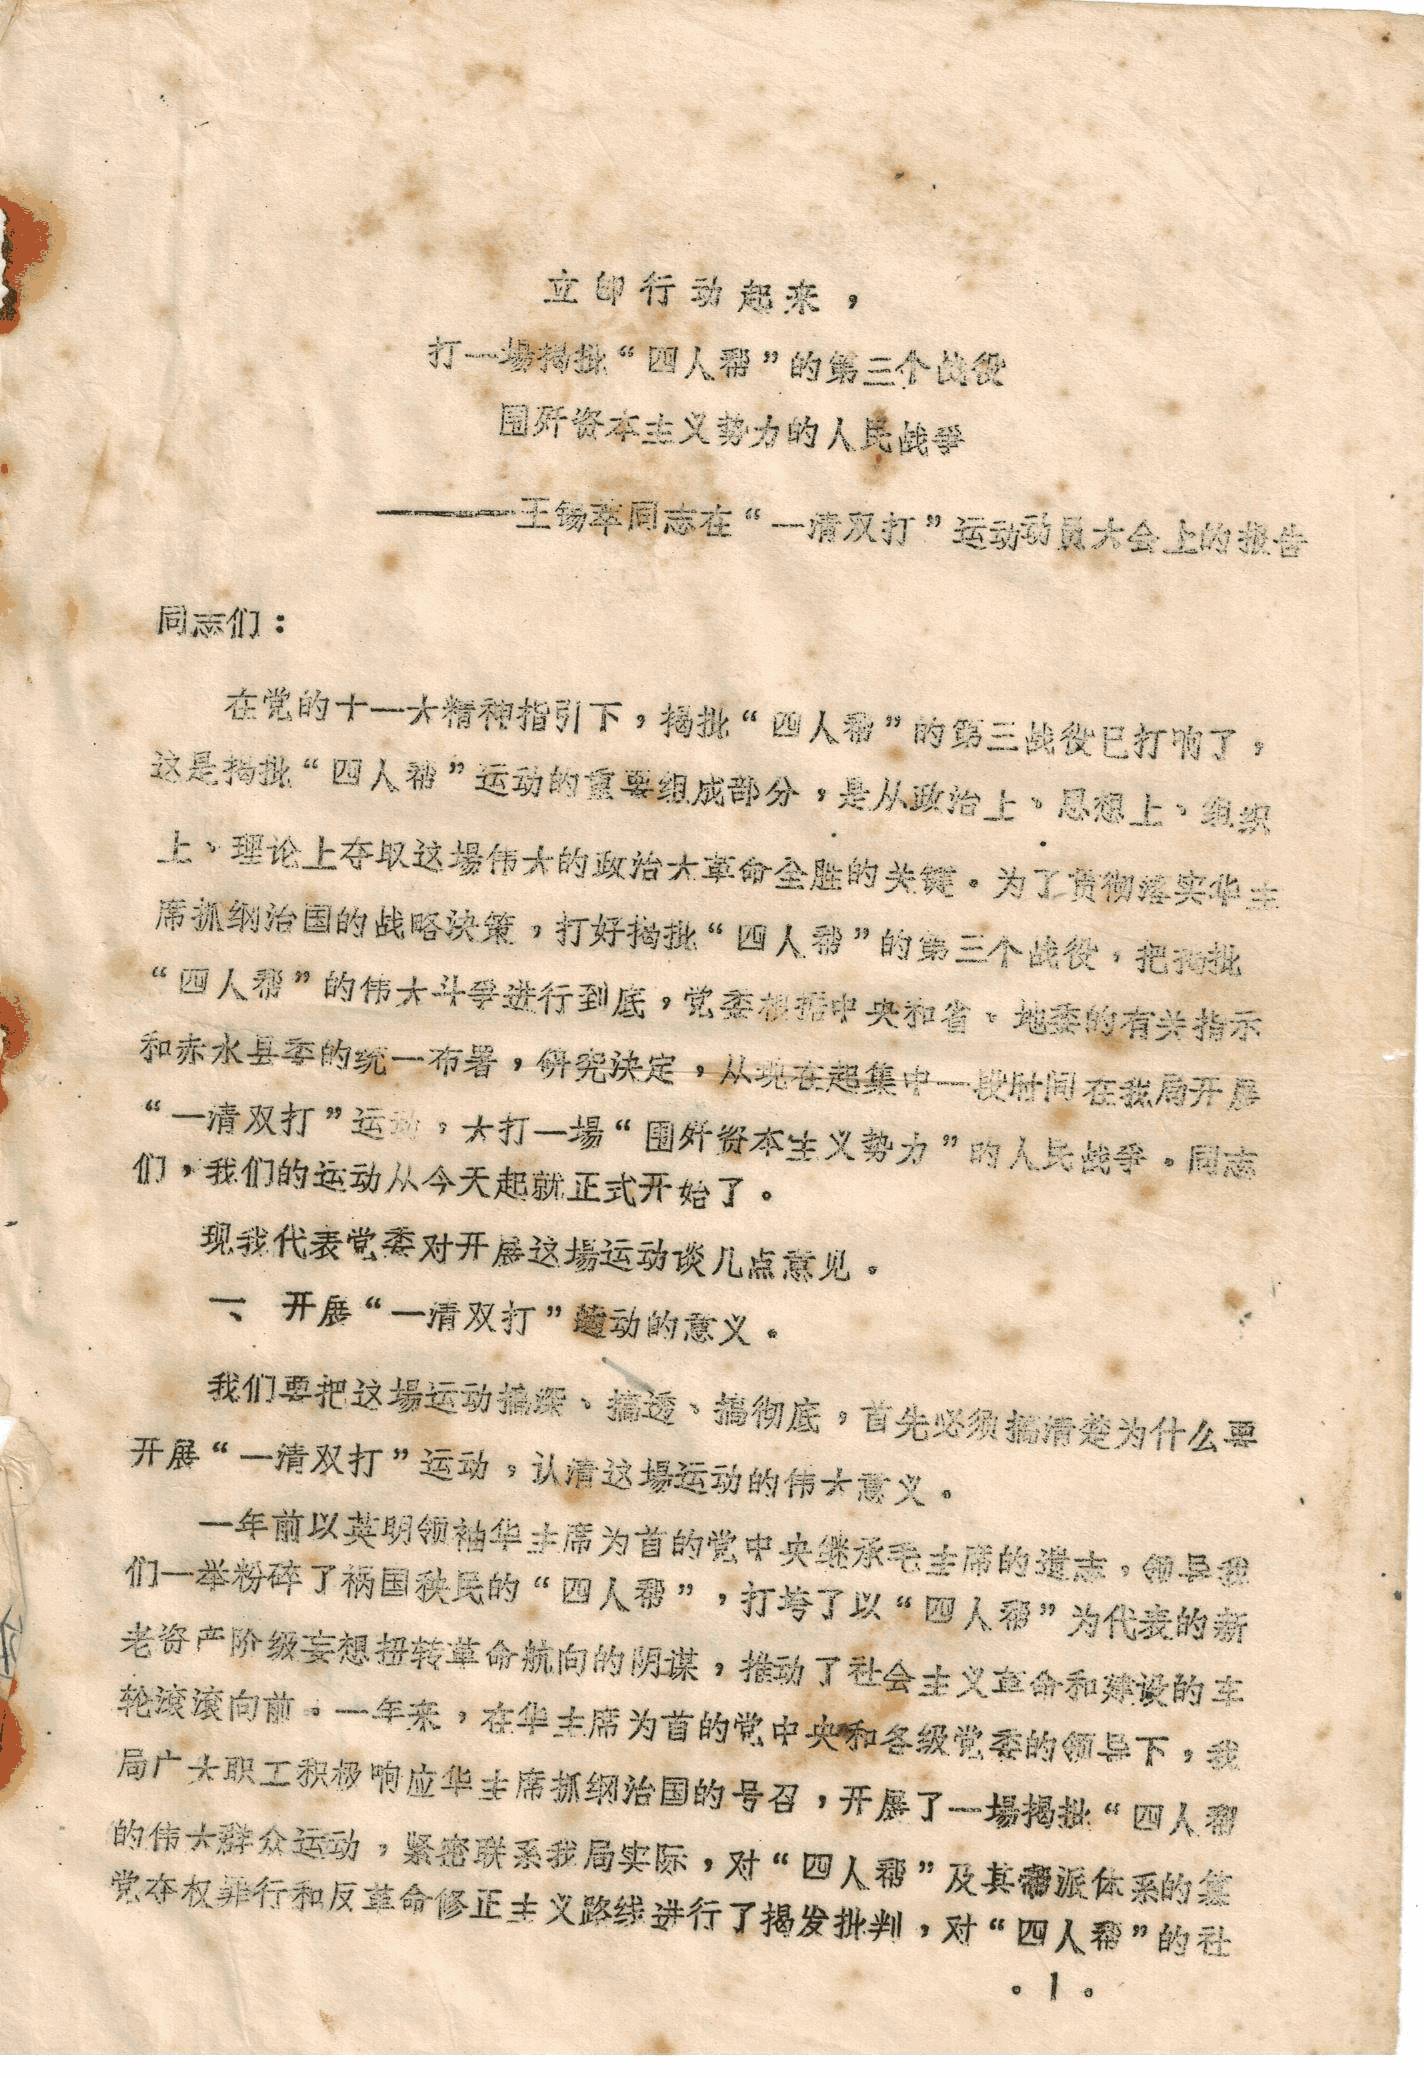 立即行动起来，
打一場揭批“四人帮”的第三个战役
围歼资本主义势力的人民战爭
———王锡萃同志在“一清双打”运动动员大会上的报告
同志们：
在党的十一大精神指引下，揭批“四人帮”的第三战役已打响了，
这是揭批“四人帮”运动的重要组成部分，是从政治上、思想上、组织
上、理论上夺取这場伟大的政治大革命全胜的关键。为了贯彻落实华主
席抓纲治国的战略决策，打好揭批“四人帮”的第三个战役，把揭批
“四人帮”的伟大斗爭进行到底，党委根据中央和省、地委的有关指示
和赤水县委的统一布署，研究决定，从现在起集中一段时间在我局开展
“一清双打”运动，大打一場“围歼资本主义势力”的人民战爭。同志
们，我们的运动从今天起就正式开始了。
现我代表党委对开展这場运动谈几点意见。
一、开展“一清双打”运动的意义。
我们要把这場运动搞深、搞透、搞彻底，首先必须搞清楚为什么要
开展“一清双打”运动，认清这場运动的伟大意义。
一年前以英明领袖华主席为首的党中央继承毛主席的遗志，领导我
们一举粉碎了祸国秧民的“四人帮”，打垮了以“四人帮”为代表的新
老资产阶级妄想扭转革命航向的阴谋，推动了社会主义革命和建设的车
轮滚滚向前。一年来，在华主席为首的党中央和各级党委的领导下，我
局广大职工积极响应华主席抓纲治国的号召，开展了一場揭批“四人帮
的伟大群众运动，紧密联系我局实际，对“四人帮”及其帮派体系的篡
党夺权罪行和反革命修正主义路线进行了揭发批判，对“四人帮”的社
。1。